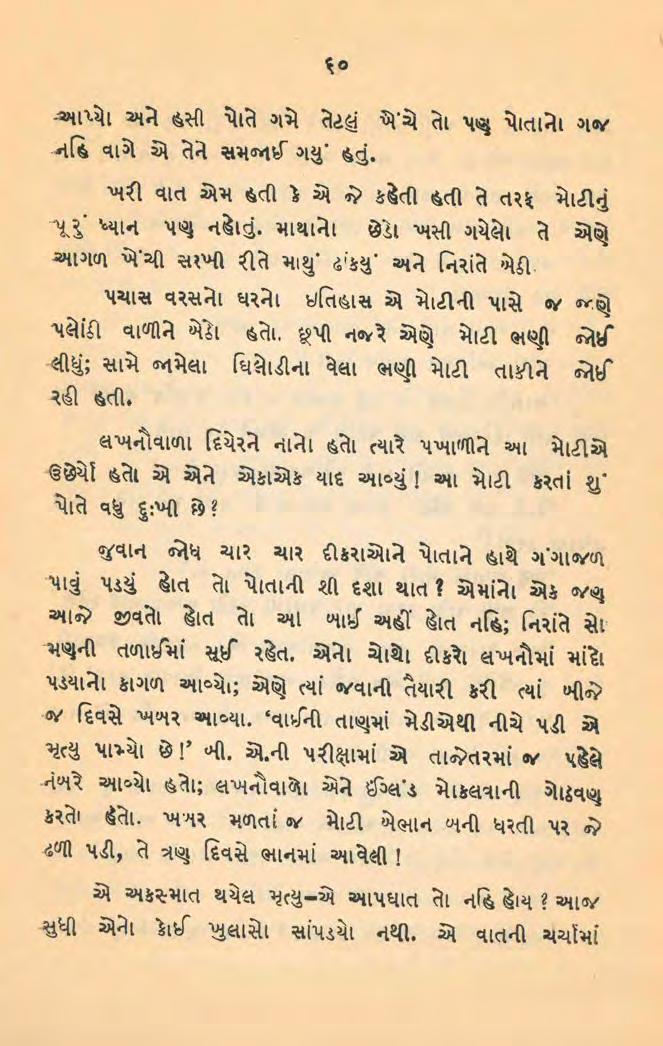 ૬૦
આપ્યો અને હસી પોતે ગમે તેટલું ખેંચે તો પણ પોતાનો ગજ
નહિ વાગે એ તેને સમજાઈ ગયું હતું.
ખરી વાત એમ હતી કે એ જે કહેતી હતી તે તરફ મોટીનું
પૂરું ધ્યાન પણ નહોતું. માથાનો છેડો ખસી ગયેલો તે એણે
આગળ ખેંચી સરખી રીતે માથું ઢાંકયું અને નિરાંતે બેઠી.
પચાસ વરસનો ઘરનો ઇતિહાસ એ મોટીની પાસે જ જાણે
પલોંઠી વાળીને બેઠો હતો. છૂપી નજરે એણે મોટી ભણી જોઈ
લીધું; સામે જામેલા ઘિલોડીના વેલા ભણી મોટી તાકીને જોઈ
રહી હતી.
લખનૌવાળા દિયેરને નાનો હતો ત્યારે પખાળીને આ મોટીએ
ઉછેર્યો હતો એ એને એકાએક યાદ આવ્યું! આ મોટી કરતાં શું
પોતે વધુ દુઃખી છે?
જુવાન જોધ ચાર ચાર દીકરાઓને પોતાને હાથે ગંગાજળ
પાવું પડયું હોત તો પોતાની શી દશા થાત? એમાંનો એક જણ
આજે જીવતો હોત તો આ બાઈ અહીં હોત નહિ; નિરાંતે સો
મણની તળાઈમાં સૂઈ રહેત. એનો ચોથો દીકરો લખનૌમાં માંદો
પડયાનો કાગળ આવ્યો; એણે ત્યાં જવાની તૈયારી કરી ત્યાં બીજે
જ દિવસે ખબર આવ્યા. ‘વાઈની તાણમાં મેડીએથી નીચે પડી એ
મૃત્યુ પામ્યો છે!’ બી. એ.ની પરીક્ષામાં એ તાજેતરમાં જ પહેલે
નંબરે આવ્યો હતો; લખનૌવાળો એને ઈંગ્લંડ મોકલવાની ગોઠવણ
કરતો હતો. ખબર મળતાં જ મોટી બેભાન બની ધરતી પર જે
ઢળી પડી, તે ત્રણ દિવસે ભાનમાં આવેલી!
એ અકસ્માત થયેલ મૃત્યુ–એ આપઘાત તો નહિ હોય? આજ
સુધી એનો કોઈ ખુલાસો સાંપડયો નથી. એ વાતની ચર્ચામાં